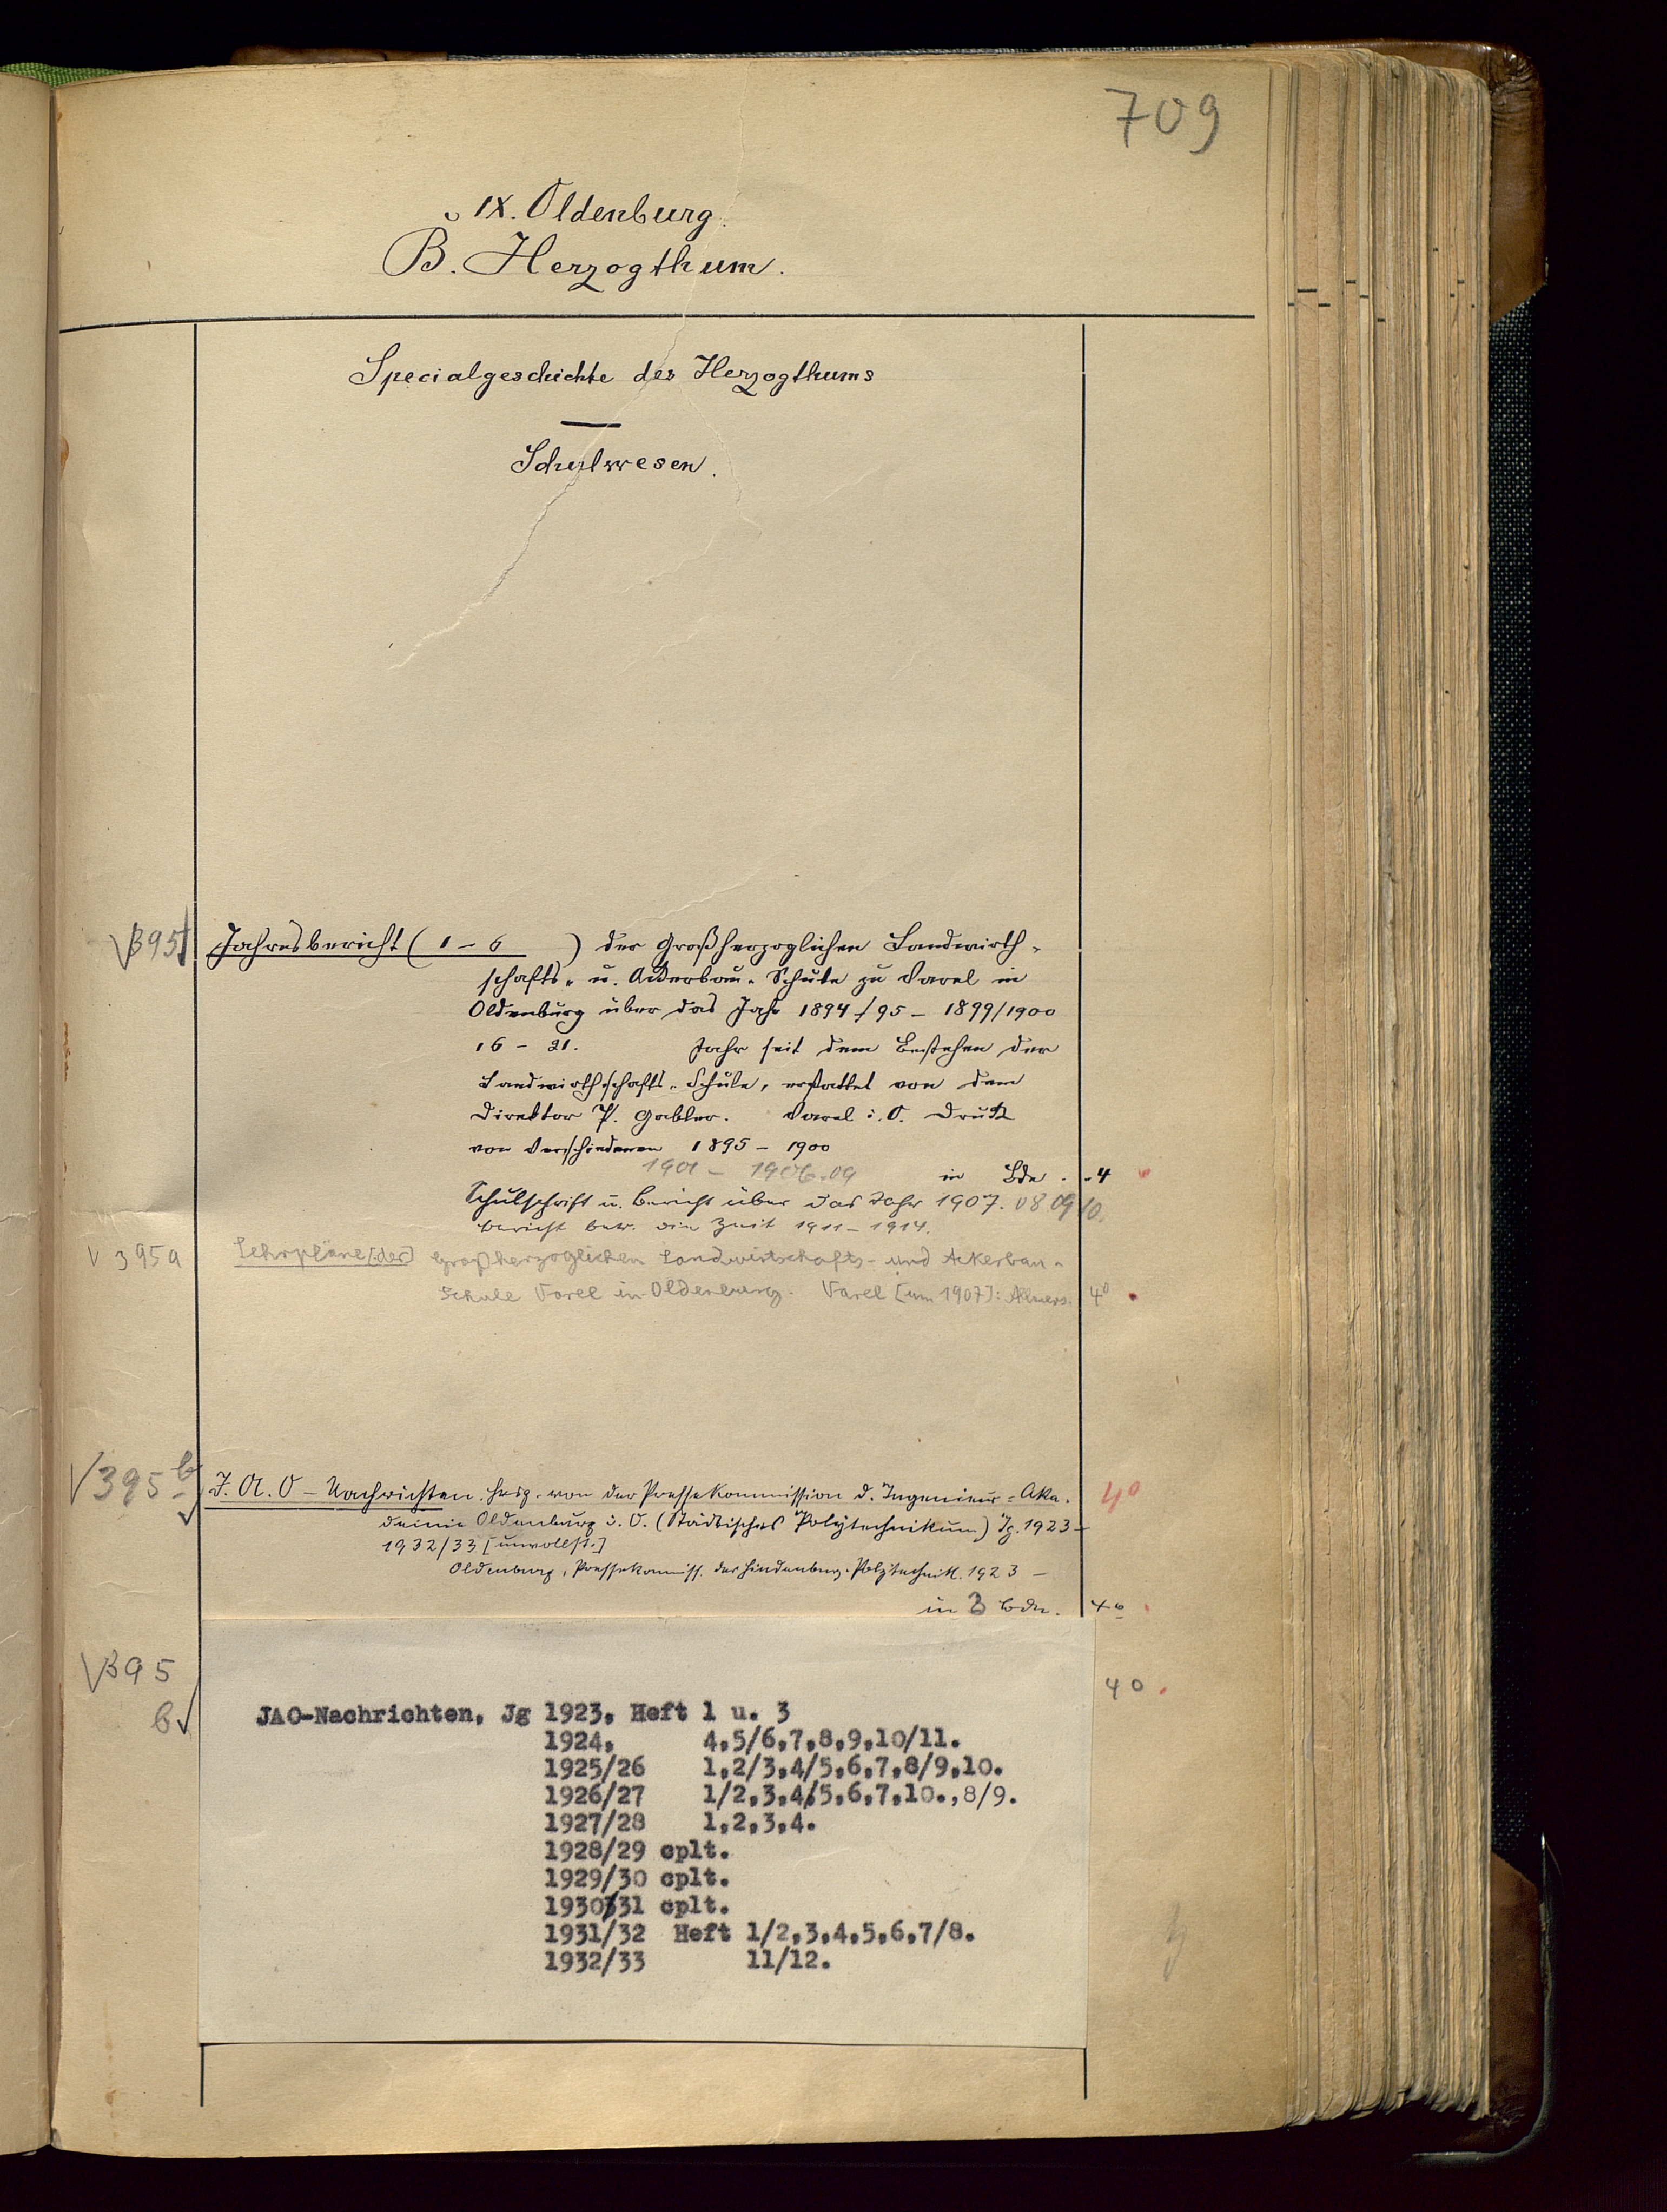 709
IX. Oldenburg.
B. Herzogthum.
Specialgeschichte des Herzogthums
Schulwesen.
395 Jahresbericht (1-6 ) der Großherzoglichen Landwirth-
schafts- u. Ackerbau-Schule zu Varel in
Oldenburg über das Jahr 1894/95 - 1899/1900
16 - 21. Jahr seit dem Bestehen der
Landwirthschafts-Schule, erstattet von dem
Direktor P. Gabler. Varel i. O. Druck
von Verschiedenen 1895 - 1900
1901 - 1906.09 in Bde. 4
Schulschrift u. Bericht über das Jahr 1907. 08 09 10.
Bericht betr. die Zeit 1911-1914.
395a Lehrpläne [der] Großherzoglichen Landwirtschafts- und Ackerbau-
Schule Varel in Oldenburg. Varel [um 1907]: Allmers. 4°
395 b J. A. O - Nachrichten. Hrsg. von der Pressekommission d. Ingenieur-Aka- 4°
demie Oldenburg i. O. (Städtisches Polytechnikum) Jg. 1923-
1932/33 [unvollst.]
Oldenburg, Pressekommiss. des Hindenburg-Polytechnik. 1923 -
in 3 Bdn. 4°
395 b 4°.
JAO-Nachrichten, Jg 1923, Heft 1 u. 3
1924, 4,5/6,7,8,9,10/11.
1925/26 1,2/3,4/5,6,7,8/9,10.
1926/27 1/2,3,4/5,6,7,10.,8/9.
1927/28 1,2,3,4.
1928/29 cplt.
1929/30 cplt.
1930/31 cplt.
1931/32 Heft 1/2,3,4,5,6,7/8.
1932/33 11/12.